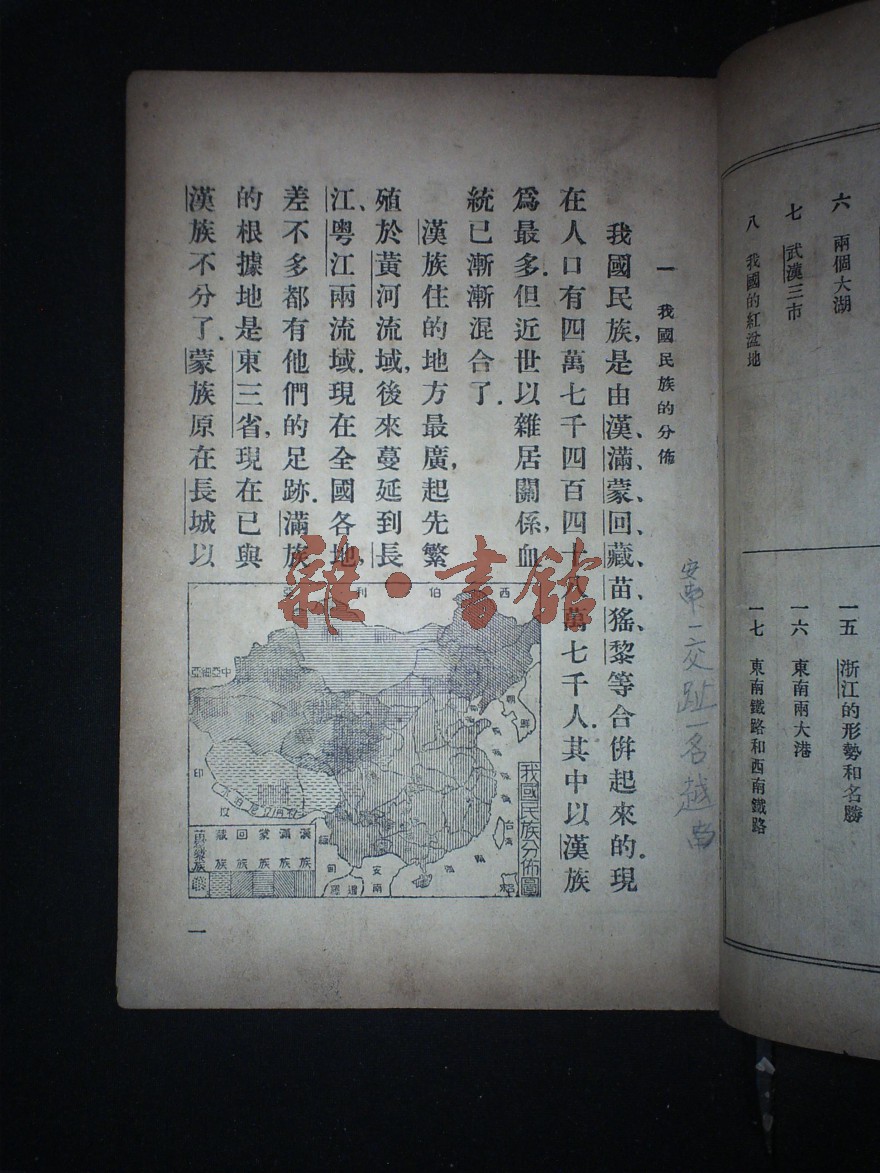 六 兩個大湖
七 武漢三市
八 我國的紅盆地
一五 浙江的形勢和名勝
一六 東南兩大港
一七 東南鐵路和西南鐵路
安南一二交趾一名越南
一 我國民族的分佈
我國民族,是由漢、滿、蒙、回、藏、苗、猺、黎等合併起來的.現
在人口有四萬七千四百四十八萬七千人.其中以漢族
爲最多.但近世以雜居關係,血
統已漸漸混合了.
漢族住的地方最廣,起先繁
殖於黃河流域,後來蔓延到長
江、粵江兩流域.現在全國各地,
差不多都有他們的足跡.滿族
的根據地是東三省,現在已與
漢族不分了.蒙族原在長城以
雜·書館
西伯利亞
中亞細亞
朝鮮
印度
緬甸
暹羅
安南
台灣
我國民族分佈圖
漢族
滿族
蒙族
回族
藏族
一